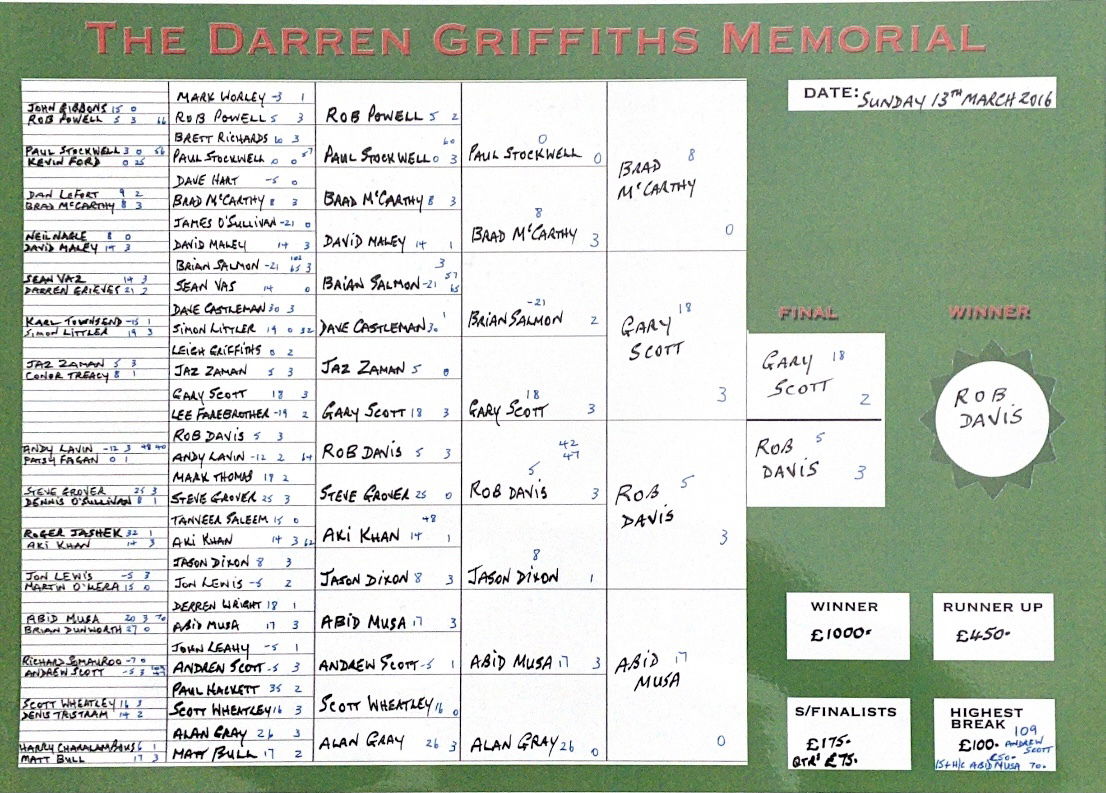 THE DARREN GRIFFITHS MEMORIAL
DATE: SUNDAY 13TH MARCH 2016
JOHN GIBBONS 15 0
ROB POWELL 5 3 66
PAUL STOCKWELL 3 0 56
KEVIN FORD 0 25
DAN LEFORT 9 2
BRAD McCARTHY 8 3
NEIL NAGLE 8 0
DAVID MALEY 14 3
SEAN VAZ 14 3
DARREN GRIEVES 21 2
KARL TOWNSEND -15 1
SIMON LITTLER 19 3
JAZ ZAMAN 5 3
CONOR TREACY 8 1
ANDY LAVIN -12 3 48 40
PATSY FAGAN 0 1
STEVE GROVER 25 3
DENNIS O'SULLIVAN 8 1
ROGER JASHEK 32 1
AKI KHAN 14 3
JON LEWIS -5 3
MARTIN O'MERA 15 0
ABID MUSA 20 3 70
BRIAN DUNWORTH 27 0
RICHARD -7 0
ANDREW SCOTT -5 3
SCOTT WHEATLEY 16 3
DENIS TRISTRAM 14 2
HARRY 6 1
MATT BULL 17 3
MARK WORLEY -3 1
ROB POWELL 5 3
BRETT RICHARDS 10 3
PAUL STOCKWELL 0 0 57
DAVE HART -5 0
BRAD McCARTHY 8 3
JAMES O'SULLIVAN -21 0
DAVID MALEY 14 3
BRIAN SALMON -21 102 65 3
SEAN VAS 14 0
DAVE CASTLEMAN 30 3
SIMON LITTLER 19 0 32
LEIGH GRIFFITHS 0 2
JAZ ZAMAN 5 3
GARY SCOTT 18 3
LEE FAREBROTHER -19 2
ROB DAVIS 5 3
ANDY LAVIN -12 2 64
MARK THOMAS 18 2
STEVE GROVER 25 3
TANVEER SALEEM 15 0
AKI KHAN 14 3 62
JASON DIXON 8 3
JON LEWIS -5 2
DERREN WRIGHT 18 1
ABID MUSA 17 3
JOHN LEAHY -5 1
ANDREW SCOTT -5 3
PAUL HACKETT 35 2
SCOTT WHEATLEY 16 3
ALAN GRAY 26 3
MATT BULL 17 2
ROB POWELL 5 2
60
PAUL STOCKWELL 0 3
BRAD McCARTHY 8 3
DAVID MALEY 14 1
3
BRIAN SALMON -21 57 65
DAVE CASTLEMAN 30 1
JAZ ZAMAN 5 0
GARY SCOTT 18 3
ROB DAVIS 5 3
STEVE GROVER 25 0
48
AKI KHAN 14 1
JASON DIXON 8 3
ABID MUSA 17 3
ANDREW SCOTT -5 1
SCOTT WHEATLEY 16 0
ALAN GRAY 26 3
0
PAUL STOCKWELL 0
8
BRAD McCARTHY 3
-21
BRIAN SALMON 2
18
GARY SCOTT 3
42
47
5
ROB DAVIS 3
8
JASON DIXON 1
ABID MUSA 17 3
ALAN GRAY 26 0
BRAD 8
McCARTHY
0
GARY 18
SCOTT
3
ROB 5
DAVIS
3
ABID 17
MUSA
0
FINAL
GARY 18
SCOTT 2
ROB 5
DAVIS 3
WINNER
ROB
DAVIS
WINNER
£1000.
RUNNER UP
£450.
S/FINALISTS
£175.
QTR' £75.
HIGHEST
BREAK 109
£100. ANDREW
SCOTT
£50.
15+ H/C ABID MUSA 70.